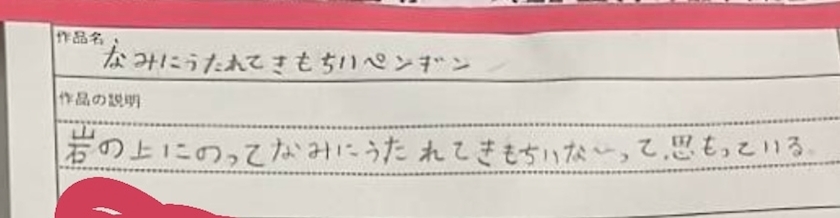 作品名
なみにうたれてきもちいペンギン
作品の説明
岩の上にのってなみにうたれてきもちいな〜って、思もっている。